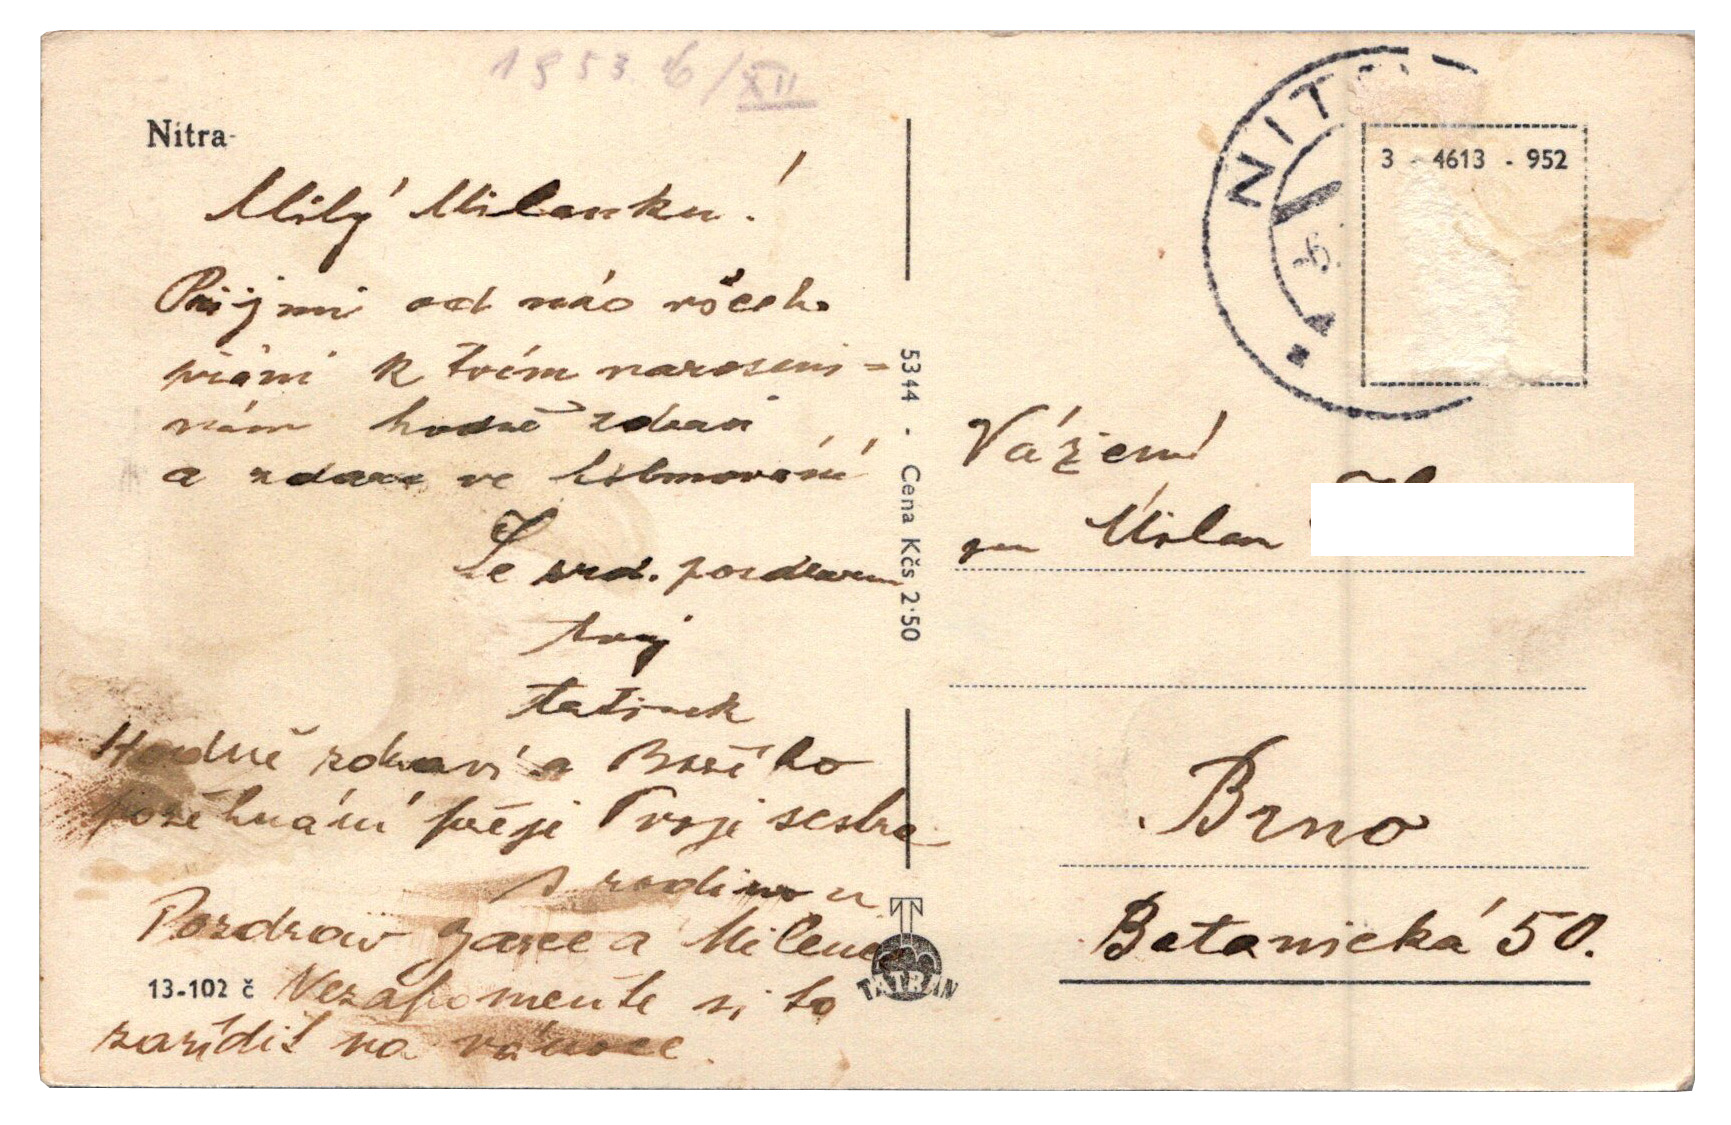 1953. 6/XII
Nitra
Milý Milanku!
Prijmi od nás všech
přání k tvém narozeni=
nám hodně zdraví
a zdaru ve
Se srd. pozdravem
tvoj
tatinek
Hodně zdraví a Božího
požehnání přeje Tvoje sestra
s rodinou
Pozdrav Jarce a Milene
Nezapomeňte si to
zařídit na vánoce.
13-102 č
5344 - Cena Kčs 2·50
TATRAN
NIT
3 - 4613 - 952
Vážený
pan Milan
Brno
Botanická 50.